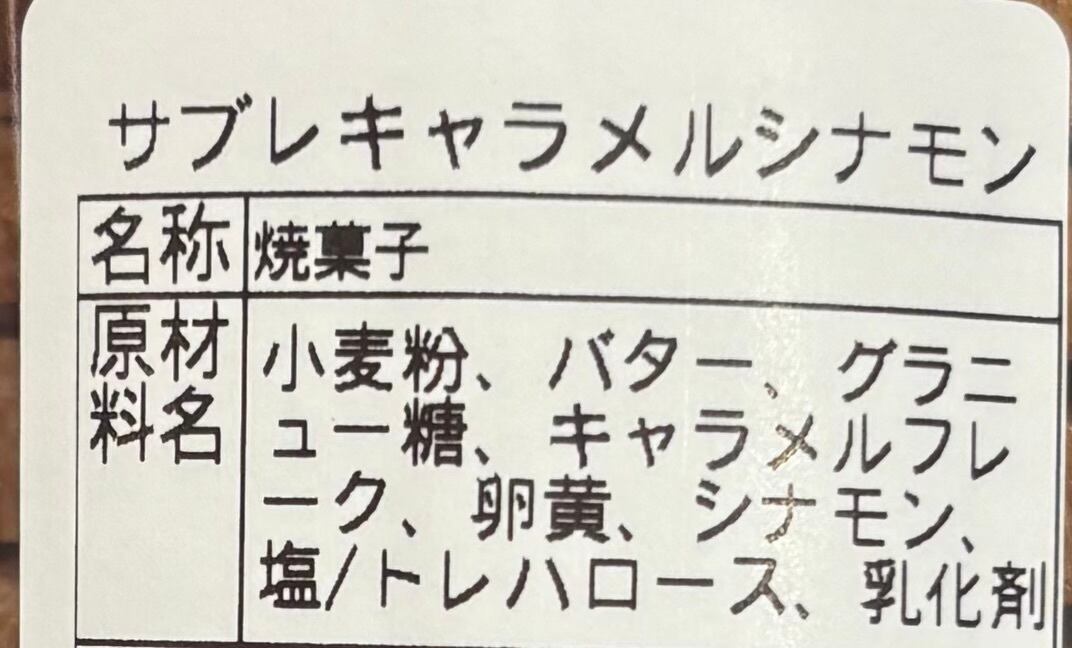 サブレキャラメルシナモン
名称 焼菓子
原材料名 小麦粉、バター、グラニ
ュー糖、キャラメルフレ
ーク、卵黄、シナモン、
塩/トレハロース、乳化剤